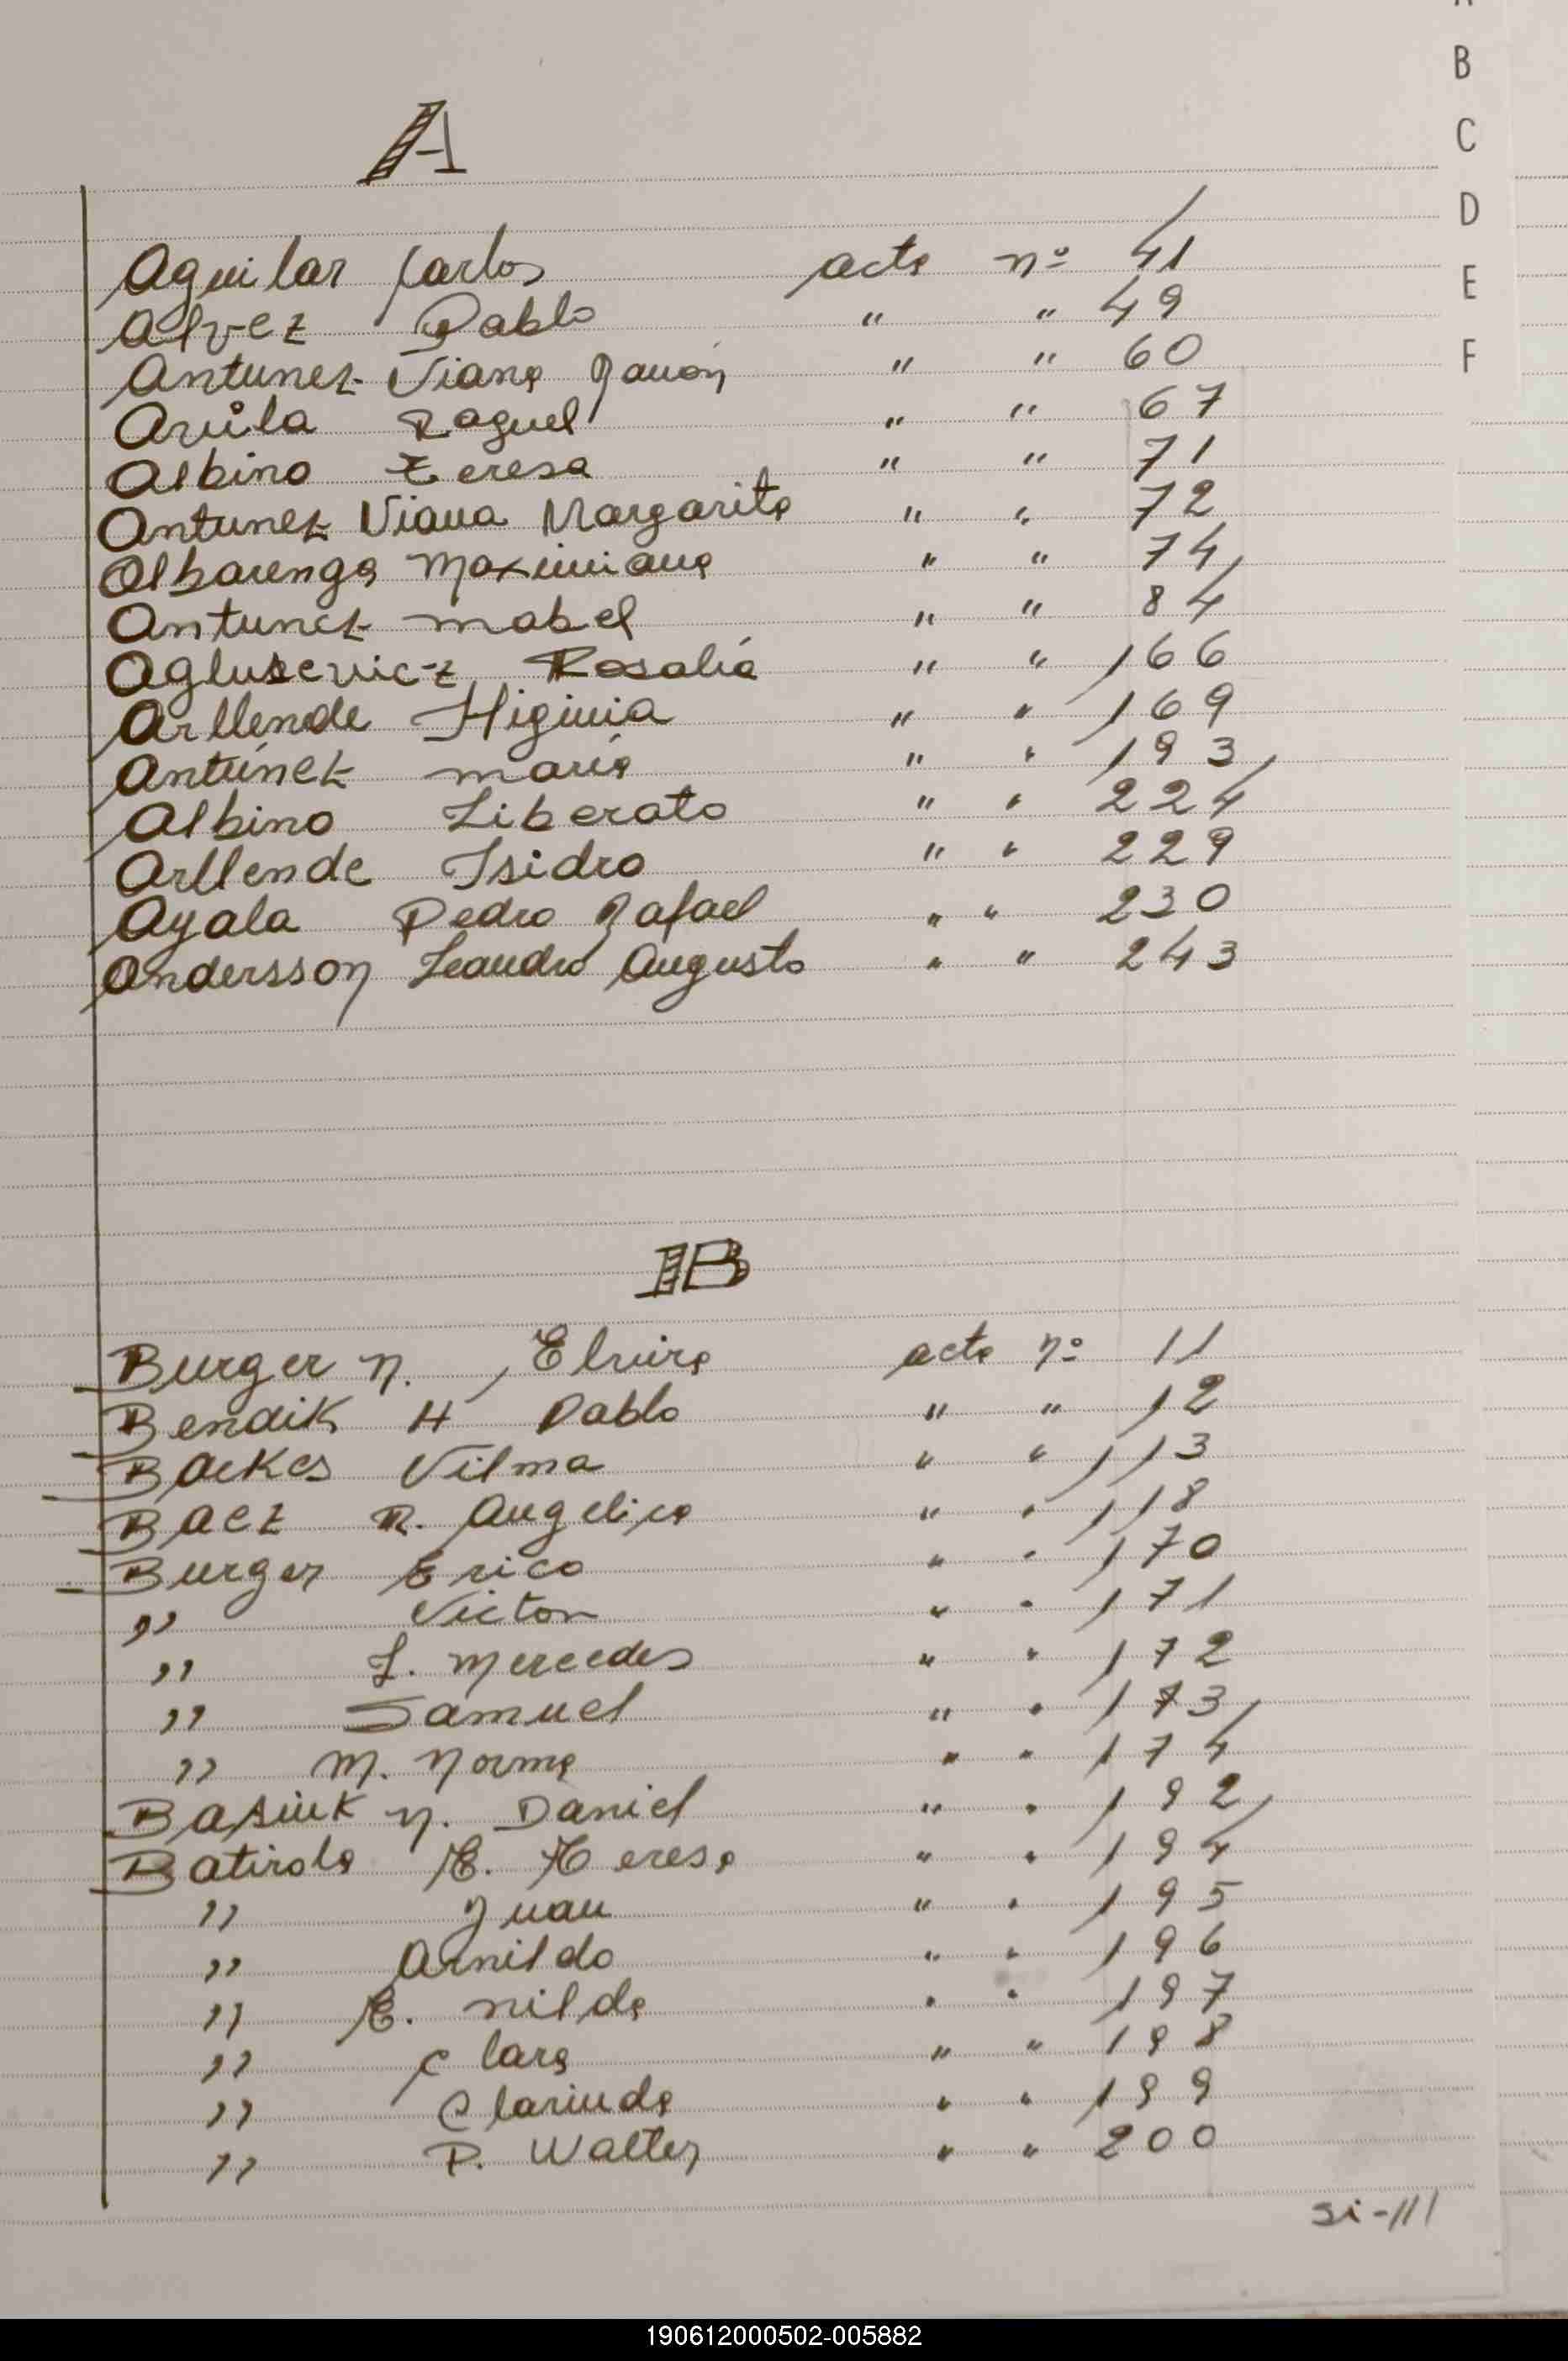 B
C
D
E
F
A
Aguilar Carlos acta nº 41
Alvez Pablo " " 49
Antunez Viana Ramón " " 60
Avila Raquel " " 67
Albino Teresa " " 71
Antunez Viana Margarita " " 72
Albarenga Maximiana " " 74
Antunez Mabel " " 84
Aglusevicz Rosalia " " 166
Arllende Higinia " " 169
Antúnez María " " 193
Albino Liberato " " 224
Arllende Isidro " " 229
Ayala Pedro Rafael " " 230
Andersson Leandro Augusto " " 243
B
Burger N. Elvira acta nº 11
Bendik H Pablo " " 12
Backes Vilma " " 113
Baez R. Angelica " " 118
Burger Erico " " 170
" Victor " " 171
" L. Mercedes " " 172
" Samuel " " 173
" M. Norma " " 174
Basiuk N. Daniel " " 192
Batirola E. Teresa " " 194
" Juan " " 195
" Arnildo " " 196
" E. Nilda " " 197
" Clara " " 198
" Clarinda " " 199
" P. Walter " " 200
Si-///
190612000502-005882